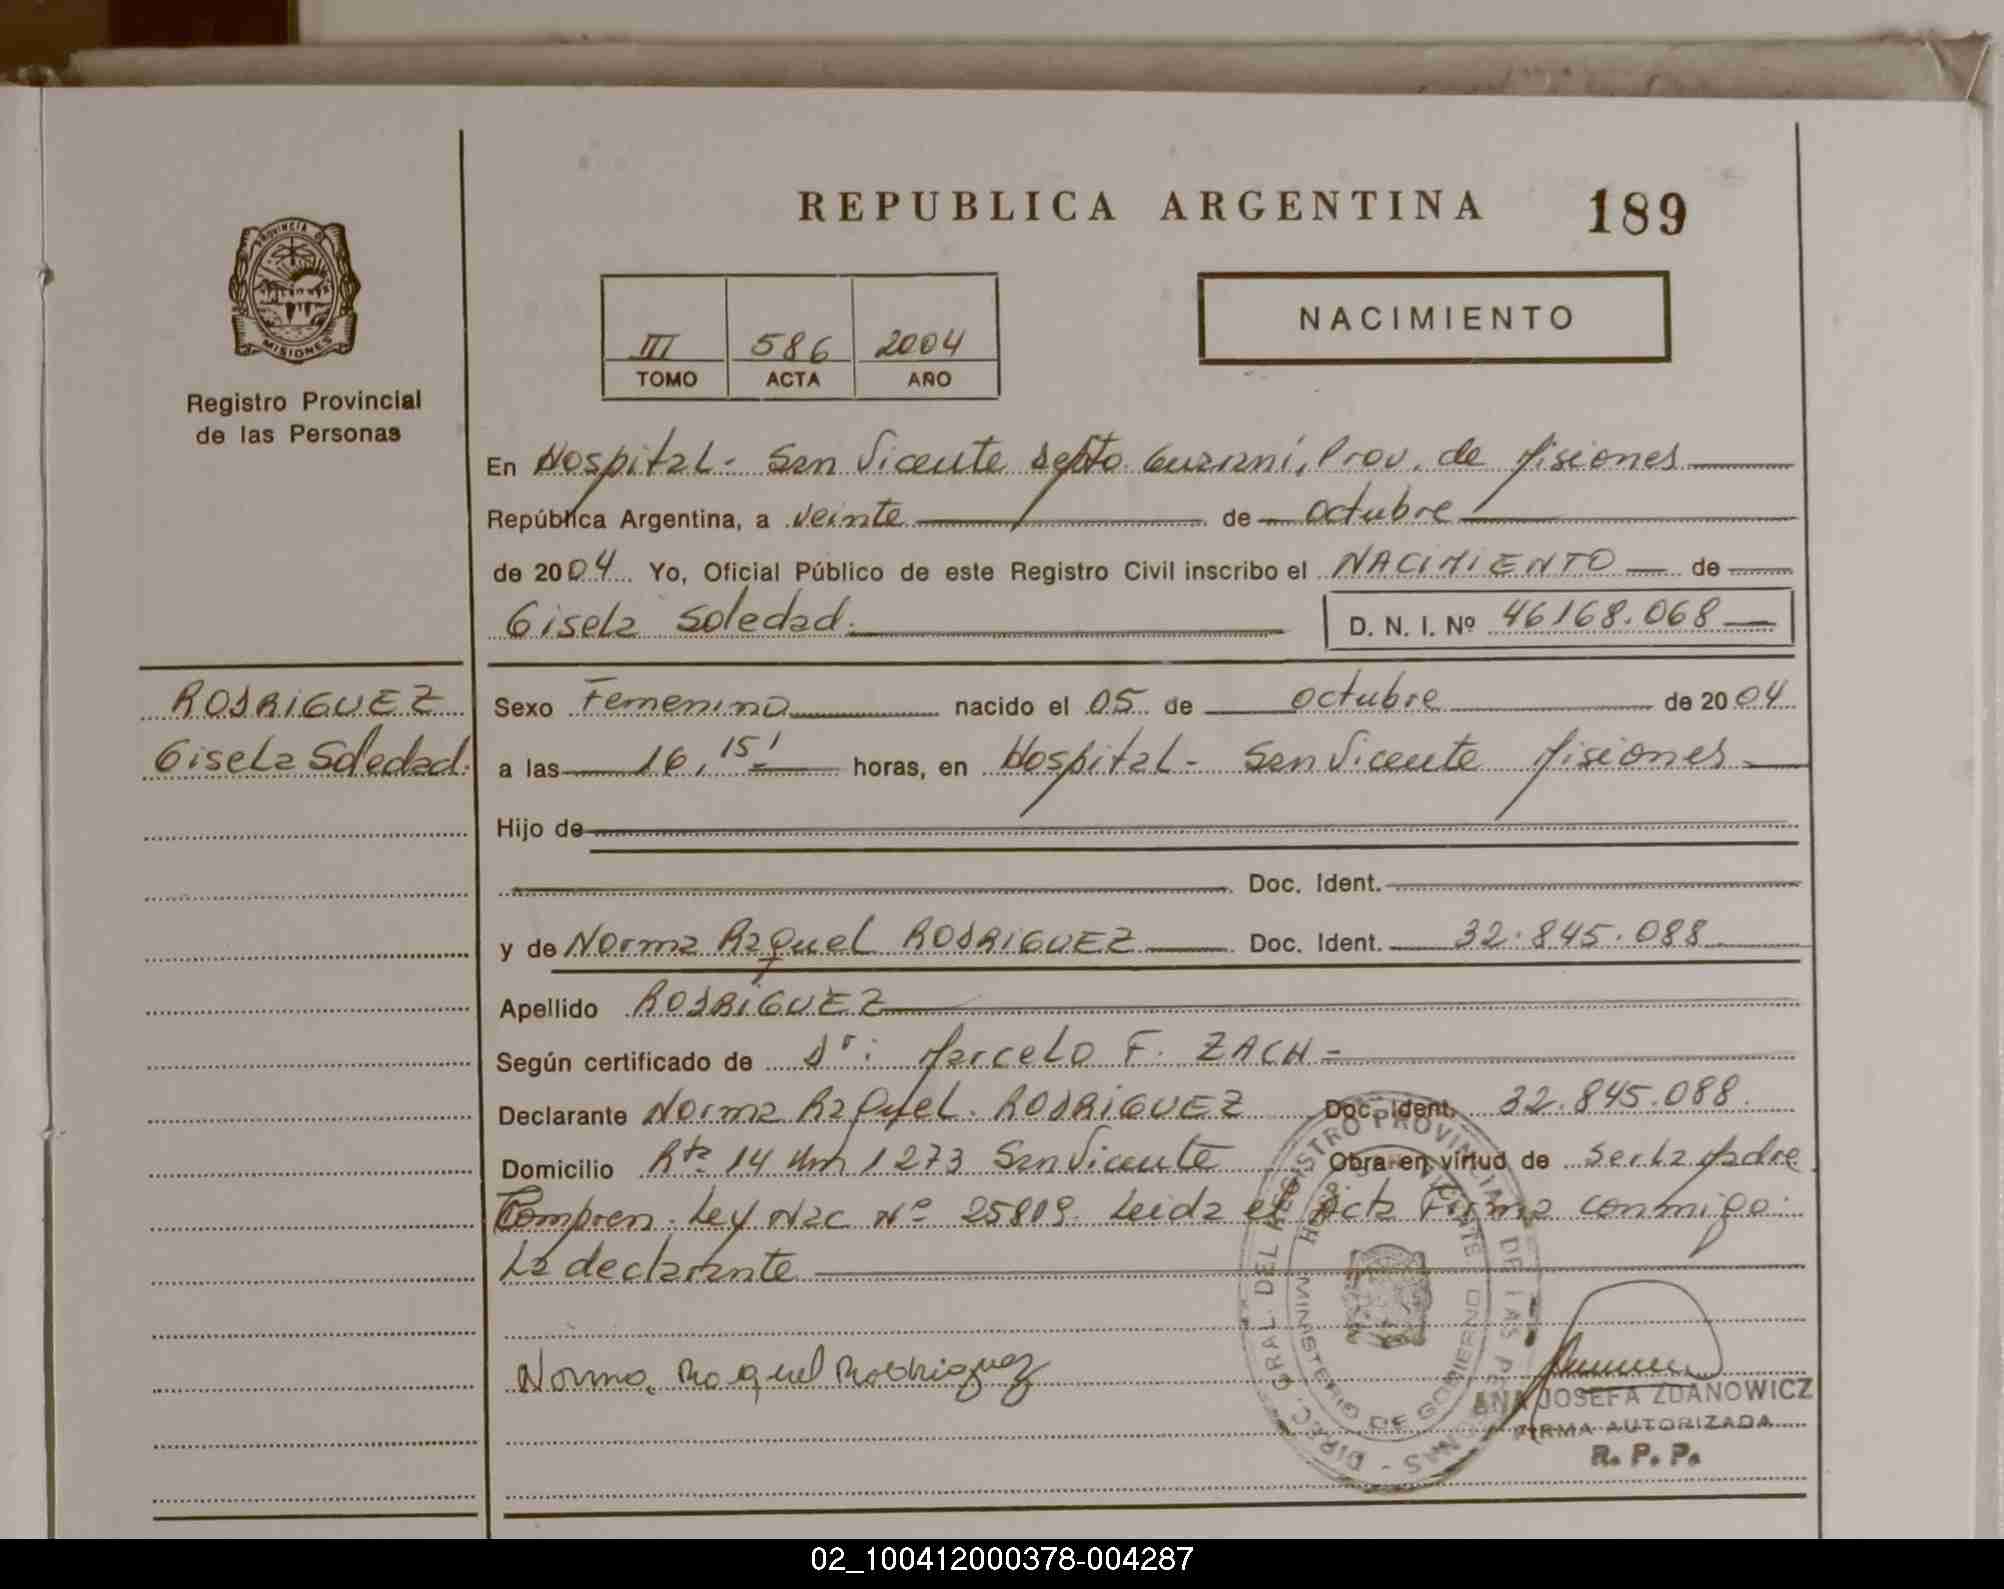 REPUBLICA ARGENTINA 189
PROVINCIA DE
MISIONES
Registro Provincial
de las Personas
III 586 2004
TOMO ACTA AÑO
NACIMIENTO
En Hospital - San Vicente Depto. Guaraní, Prov. de Misiones
República Argentina, a veinte de octubre
de 2004 Yo, Oficial Público de este Registro Civil inscribo el NACIMIENTO de
Gisela Soledad. D. N. I. Nº 46168.068
RODRIGUEZ
Gisela Soledad.
Sexo Femenino nacido el 05 de octubre de 2004
a las 16,15' horas, en Hospital - San Vicente Misiones
Hijo de
Doc. Ident.
y de Norma Raquel RODRIGUEZ Doc. Ident. 32.845.088
Apellido RODRIGUEZ
Según certificado de Dr: Marcelo F. ZACH -
Declarante Norma Raquel. RODRIGUEZ Doc. Ident. 32.845.088
Domicilio Rta 14 Km 1273 San Vicente Obra en virtud de ser la Madre
Compren. Ley Nac Nº 25819. Leida el Acta Firma conmigo
La declarante
Norma Raquel Rodriguez
DIREC. GRAL. DEL REGISTRO PROVINCIAL DE LAS PERSONAS -
MINISTERIO DE GOBIERNO
ANA JOSEFA ZDANOWICZ
FIRMA AUTORIZADA
R. P. P.
02_100412000378-004287